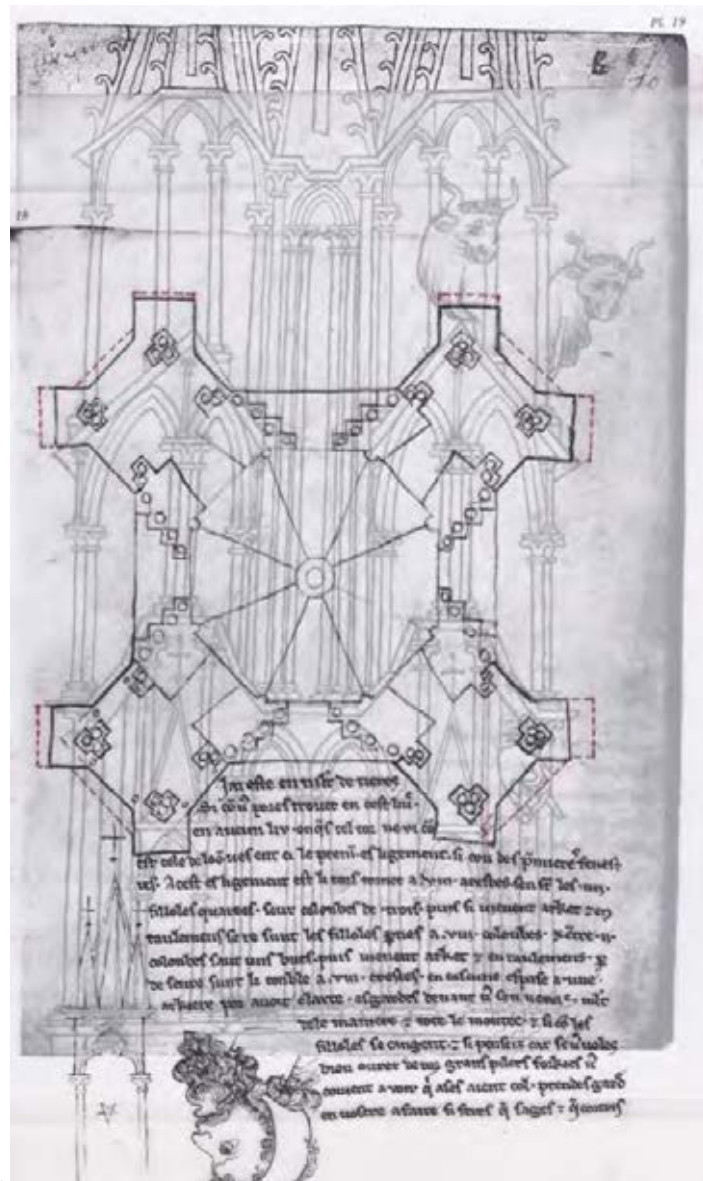 Pl. 19
18
J'ai este en mlt de tieres
si cū uꝰ pores trouer en cest liu͛.
en aucun liu onq̄s tel tor ne ui cō
est cele de le p̄mi. esligement. si con des p̄mieres fenest
res. A cest esligement est li tors tornee a .viii. arestes. sen les .iiii.
filloles quarees. seur colonbes de trois. puis si uienent arket ⁊ en
taulemens se re sunt les filloles a .viii. colonbes. ⁊ .ii.
colonbes saut uns bues. puis uienent arket ⁊ en taulemens.
de seure sunt li conble a .viii. crestes. en cascune espase a une
arkiere por auoir clarte. esgardes deuant
de le maniere ⁊ tote le montee. ⁊ si cō les
filloles se cangent. ⁊ si penseis car se uoles
bien ourer de grans pilers forkies
couient auoir q̄ ases aient col. prendes gard
en uostre afaire si feres q̄ sages ⁊ q̄ cortois